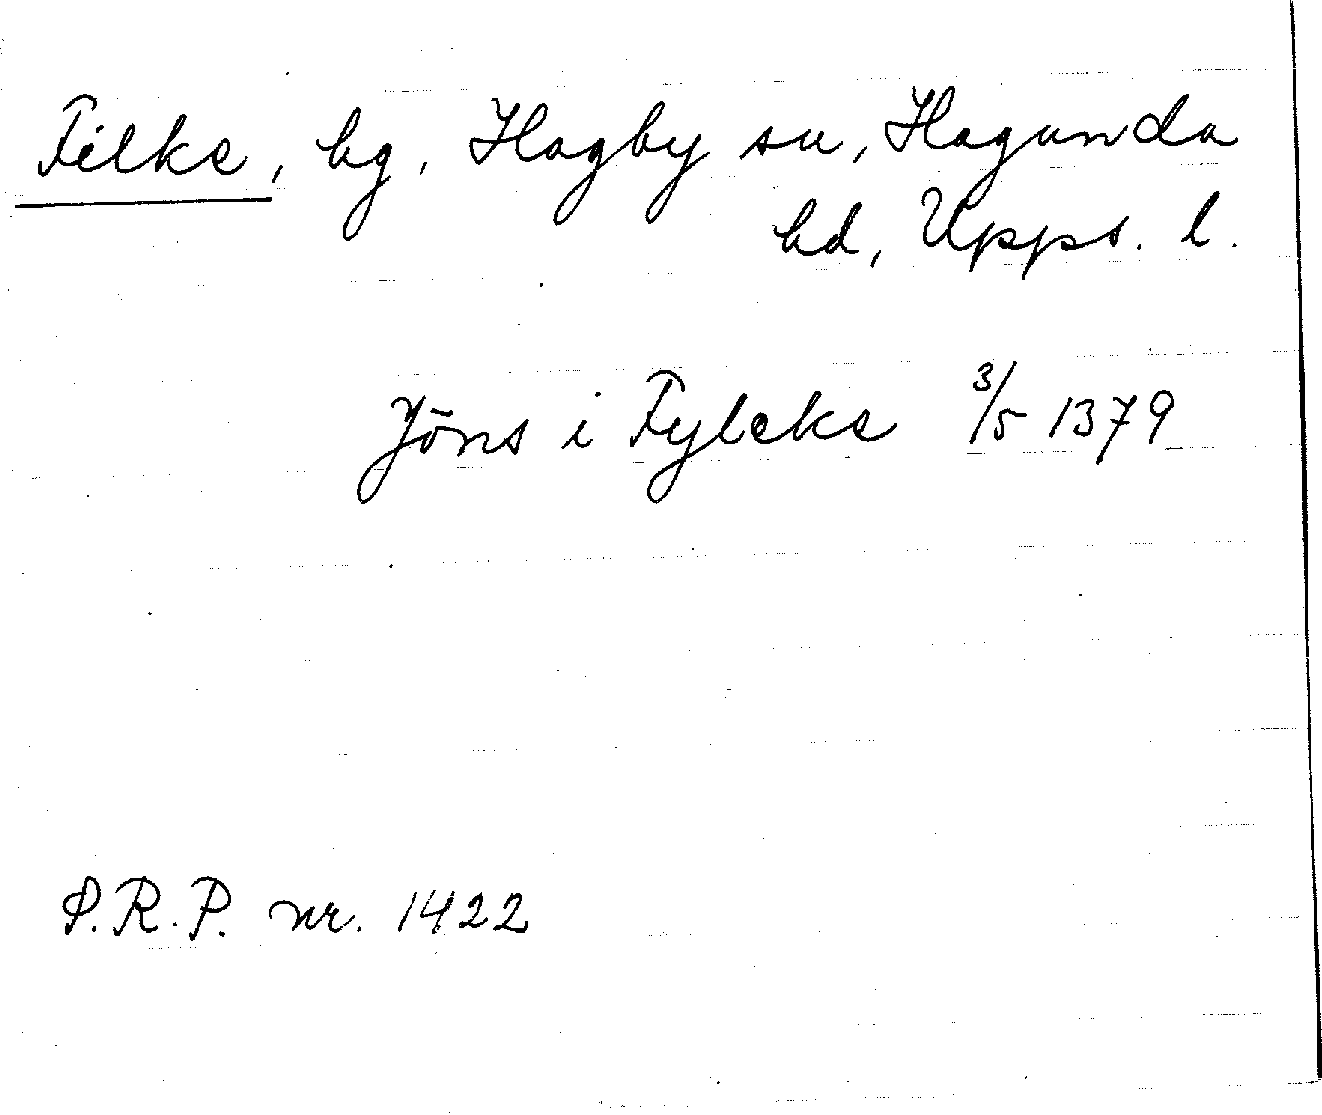 Filke, bg, Hagby sn, Hagunda
hd, Upps. l.
Jōns i Fylcke 3/5 1379
P.R.P. nr. 1422